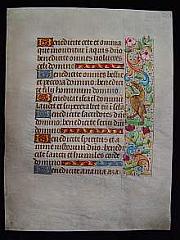 Benedicite cete et omnia
que moventur i aquis dño
Benedicite omnes volucres
celi domino
Benedicite omnes bestie et
pecora domino benedicite
filij hominum domino
Benedicat
et superexaltet eum in
Benedicite sacerdotes domini
domino benedicite servi domini
domino
Benedicite spiritus et a
nime iustorum dño benedi
cite sancti et humiles corde
domino
Benedicite anania aza